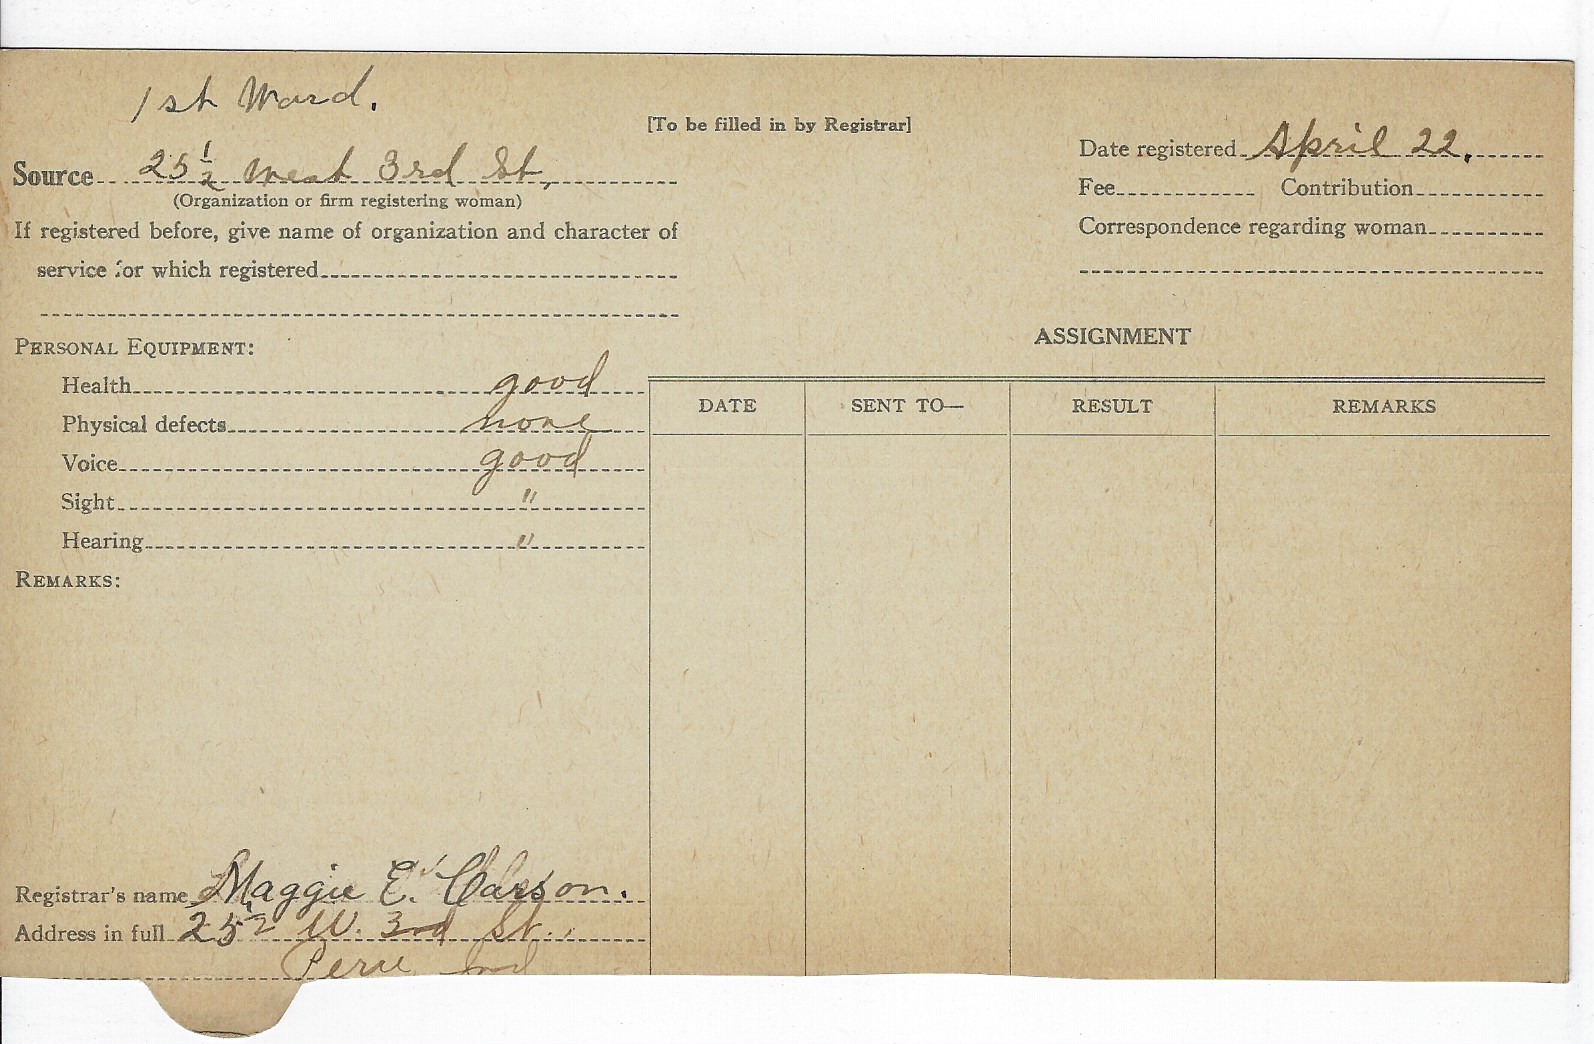 1st Ward.
[To be filled in by Registrar]
Date registered April 22.
Source 25 1/2 West 3rd St,
(Organization or firm registering woman)
Fee Contribution
If registered before, give name of organization and character of
Correspondence regarding woman
service for which registered
PERSONAL EQUIPMENT:
ASSIGNMENT
Health good
DATE SENT TO— RESULT REMARKS
Physical defects none
Voice good
Sight "
Hearing "
REMARKS:
Registrar's name Maggie E. Carson.
Address in full 25 1/2 W. 3rd St.,
Peru Ind